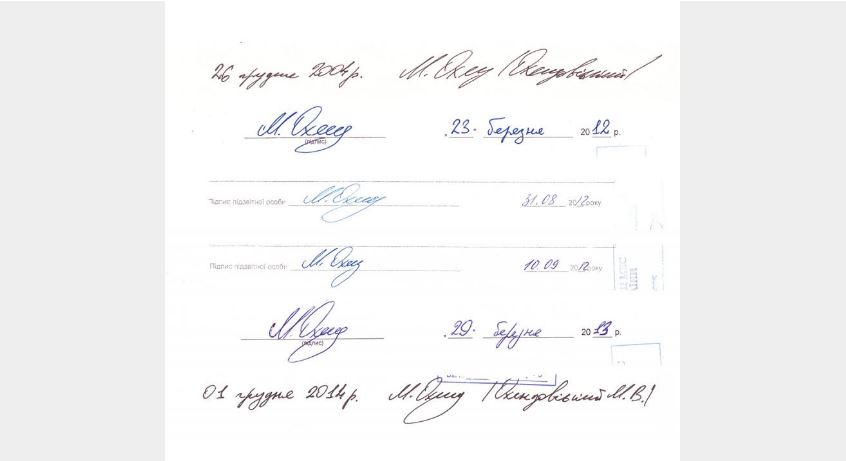 26 грудня 2004 р. М. Охенд /Охендовський/
М. Охенд 23. березня 2012 р.
(підпис)
Підпис підзвітної особи М. Охенд 31.08 2012 року
Підпис підзвітної особи М. Охенд 10.09 2012 року
М. Охенд 29. березня 2013 р.
(підпис)
01 грудня 2014 р. М. Охенд /Охендовський М.В./